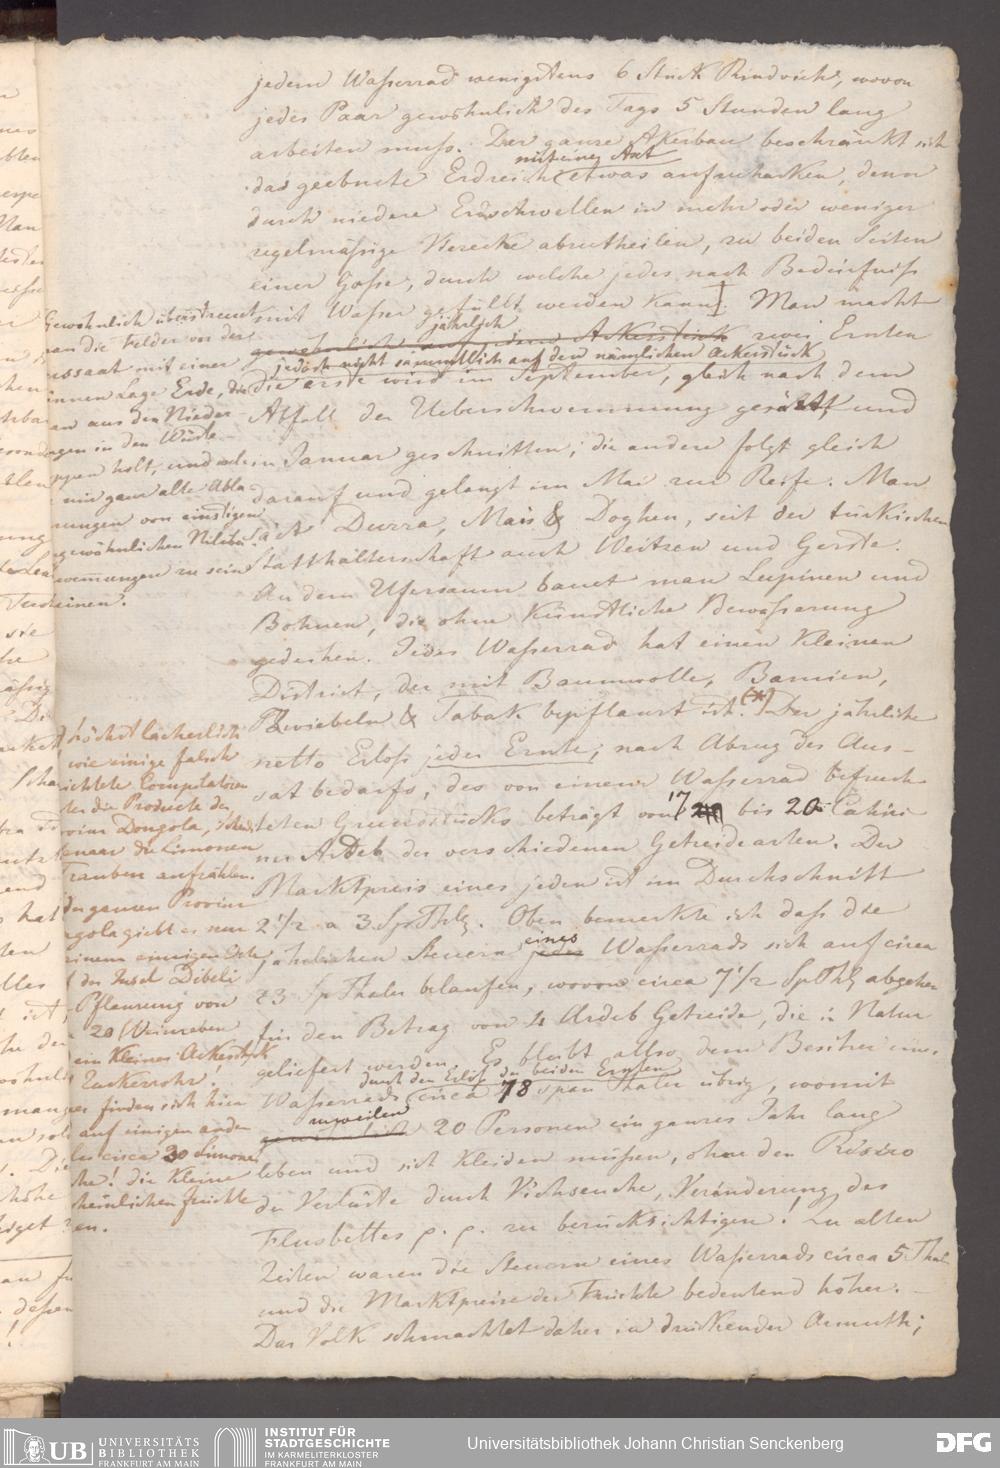 jedem Waßerrad wenigstens 6 Stück Rindvieh, wovon
jedes Paar gewöhnlich des Tags 5 Stunden lang
arbeiten muß. Der ganze Akerbau beschränkt sich
mit einer Axt
das geebnete Erdreich etwas aufzuharken, denn
durch niedere Erdschwellen in mehr oder weniger
regelmäsige Vierecke abzutheilen, zu beiden Seiten
einer Gosse, durch welche jedes nach Bedürfniß
mit Waßer gefüllt werden kann. Man macht
jährlich
gewöhnlich auf jedem Ackerstück zwei Ernten
jedoch nicht sämmtlich auf dem nämlichen Ackerstück
die erste wird im September, gleich nach dem
Abfall der Ueberschwemmung gesäet, und
im Januar geschnitten; die andere folgt gleich
darauf und gelangt im Mai zur Reife. Man
säet Durra, Mais & Doghen, seit der türkischen
Statthalterschaft auch Weitzen und Gerste.
An dem Ufersaum bauet man Lupinen und
Bohnen, die ohne künstliche Bewäßerung
gedeihen. Jedes Waßerrad hat einen kleinen
District, der mit Baumwolle, Bamien,
Zwiebeln & Tabak bepflanzt ist. (*) Der jährliche
netto Erlös jeder Ernte, nach Abzug des Aus-
sat bedarfs, des von einem Waßerrad befruch-
teten Grundstücks beträgt von 17 bis 20 Cahiri-
ner Ardeb der verschiedenen Getreidearten. Der
Marktpreis eines jeden ist im Durchschnitt
2 1/2 a 3 Sp Thlr. Oben bemerkte ich daß die
jährlichen Steuern eines Waßerrads sich auf circa
23 Sp Thaler belaufen, wovon circa 7 1/2 Sp Thlr abgehen
für den Betrag von 4 Ardeb Getreide, die in Natur
geliefert werden. Es bleibt allso dem Besitzer eines
durch den Erlös der beiden Ernten
Waßerrads circa 78 span Thaler übrig, womit
zuweilen
gewöhnlich 20 Personen ein ganzes Jahr lang
leben und sich kleiden müßen, ohne den Risico
der Verlüste durch Viehseuche, Veränderung des
Flusbettes p. p. zu berücksichtigen! Zu alten
Zeiten waren die Steuern eines Waßerrads circa 5 Thal
und die Marktpreise der Früchte bedeutend höher.
Das Volk schmachtet daher in drückender Armuth;
Gewöhnlich überstreut
man die Felder vor der
Aussaat mit einer
dünnen Lage Erde, die
man aus den Nieder-
ungen in den Wüste-
holt, und welche
nur ganz alte Abla-
gerungen von einstigen
ungewöhnlichen Nilüber-
schwemmungen zu sein
scheinen.
höchst lächerlich
wie einige falsch
Compilatoren
die Producte der
Provinz Dongola,
Senaar die Limonen
Trauben aufzählen.
In der ganzen Provinz
Dongola giebt es nur
an einem einzigen Orte
auf der Insel Dibeli
Pflanzung von
20 Weinreben
ein kleines Ackerstück
Zuckerrohr!
finden sich hier
auf einigen ande-
circa 30 Limonen
! die kleine
Früchte
UB UNIVERSITÄTS BIBLIOTHEK FRANKFURT AM MAIN
INSTITUT FÜR STADTGESCHICHTE IM KARMELITERKLOSTER FRANKFURT AM MAIN
Universitätsbibliothek Johann Christian Senckenberg
DFG